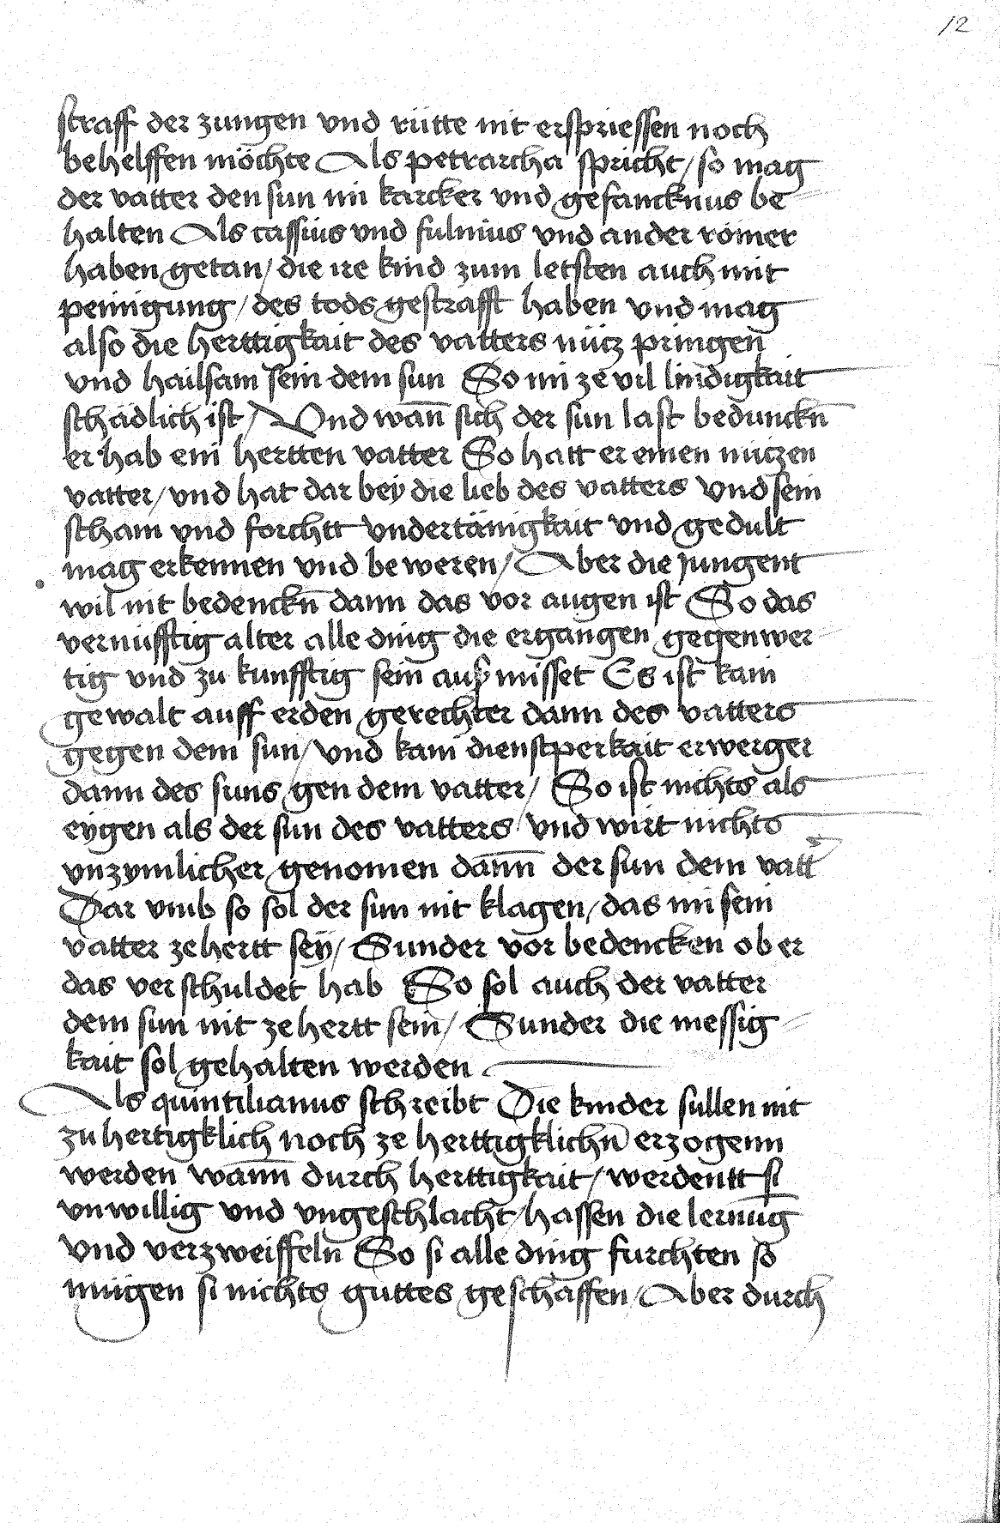 12
straff der zungen vnd rütte nit erspriessen noch
behelffen möchte Als petrarcha spricht / so mag
der vatter den sun im karcker vnd gefancknus be=
halten Als cassius vnd fulnius vnd ander römer
haben getan / die ire kind zum letsten auch mit
peinigung / des tods gestrafft haben vnd mag
also die herttigkait des vatters nücz pringen
vnd hailsam sein dem sun So im ze vil lindigkait
schädlich ist / Vnd wan̄ sich der sun last bedunckn̄
er hab ein hertten vatter So hatt er einen nüczen
vatter / vnd hat dar bey die lieb des vatters vnd sein
scham vnd forchtt vndertänigkait vnd gedult
mag erkennen vnd beweren / Aber die jungent
wil nit bedenckn̄ dann das vor augen ist So das
vernüfftig alter alle ding die ergangen gegenwer=
tig vnd zu kunfftig sein auß misset Es ist kain
gewalt auff erden gerechter dann des vatters
gegen dem sun / vnd kain dienstperkait erwerger
dann des suns gen dem vatter / So ist nichts als
eygen als der sun des vatters / vnd wirt nichts
vnzymlicher genomen dann̄ der sun dem vatt̉
Dar vmb so sol der sun nit klagen / das im sein
vatter ze hertt sey / Sunder vor bedencken ob er
das verschuldet hab So sol auch der vatter
dem sun nit ze hertt sein / Sunder die messig=
kait sol gehalten werden
Als quintilianus schreibt Die kinder sullen nit
zu hertigklich noch ze herttigklichn̄ erzogenn
werden wann̄ durch herttigkait / werdentt si
vnwillig vnd vngeschlacht / hassen die lernūg
vnd verzweiffeln So si alle ding furchten so
mügen si nichts guttes geschaffen / Aber durch